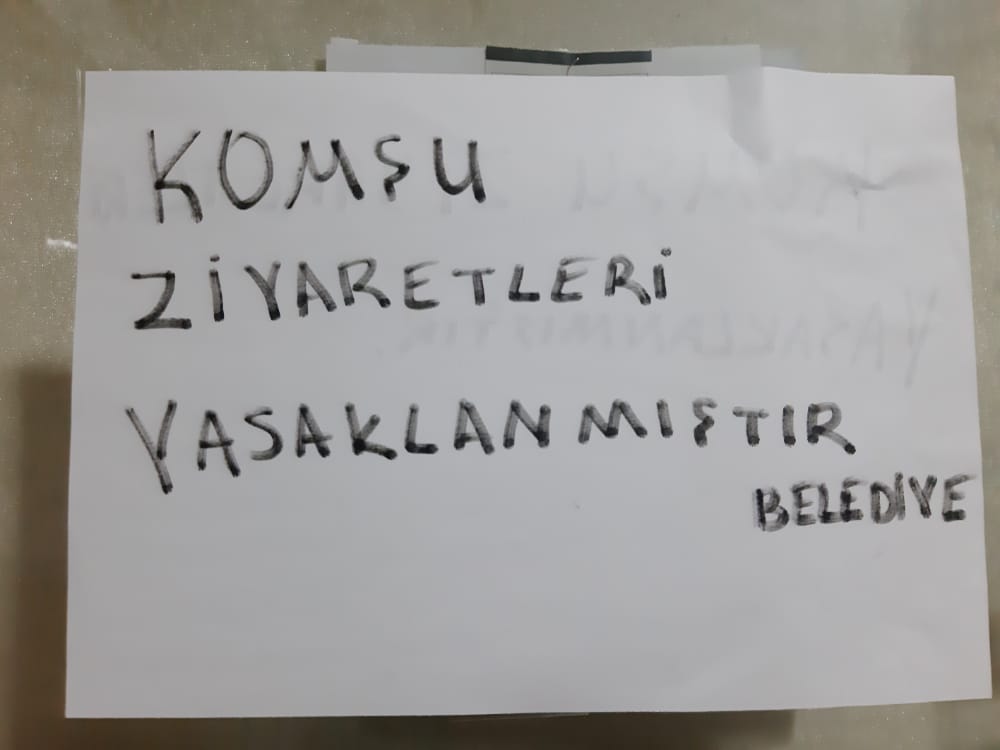 KOMŞU
ZİYARETLERİ
YASAKLANMIŞTIR
BELEDİYE